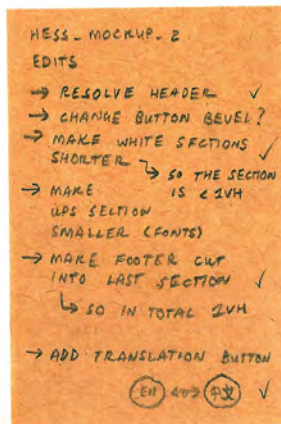 HESS_MOCKUP_2
EDITS
→ RESOLVE HEADER ✓
→ CHANGE BUTTON BEVEL?
→ MAKE WHITE SECTIONS ✓
SHORTER
↳ SO THE SECTION
IS < 1VH
→ MAKE
UPS SECTION
SMALLER (FONTS)
→ MAKE FOOTER CUT
INTO LAST SECTION ✓
↳ SO IN TOTAL 1VH
→ ADD TRANSLATION BUTTON
EN ↔ 中文 ✓